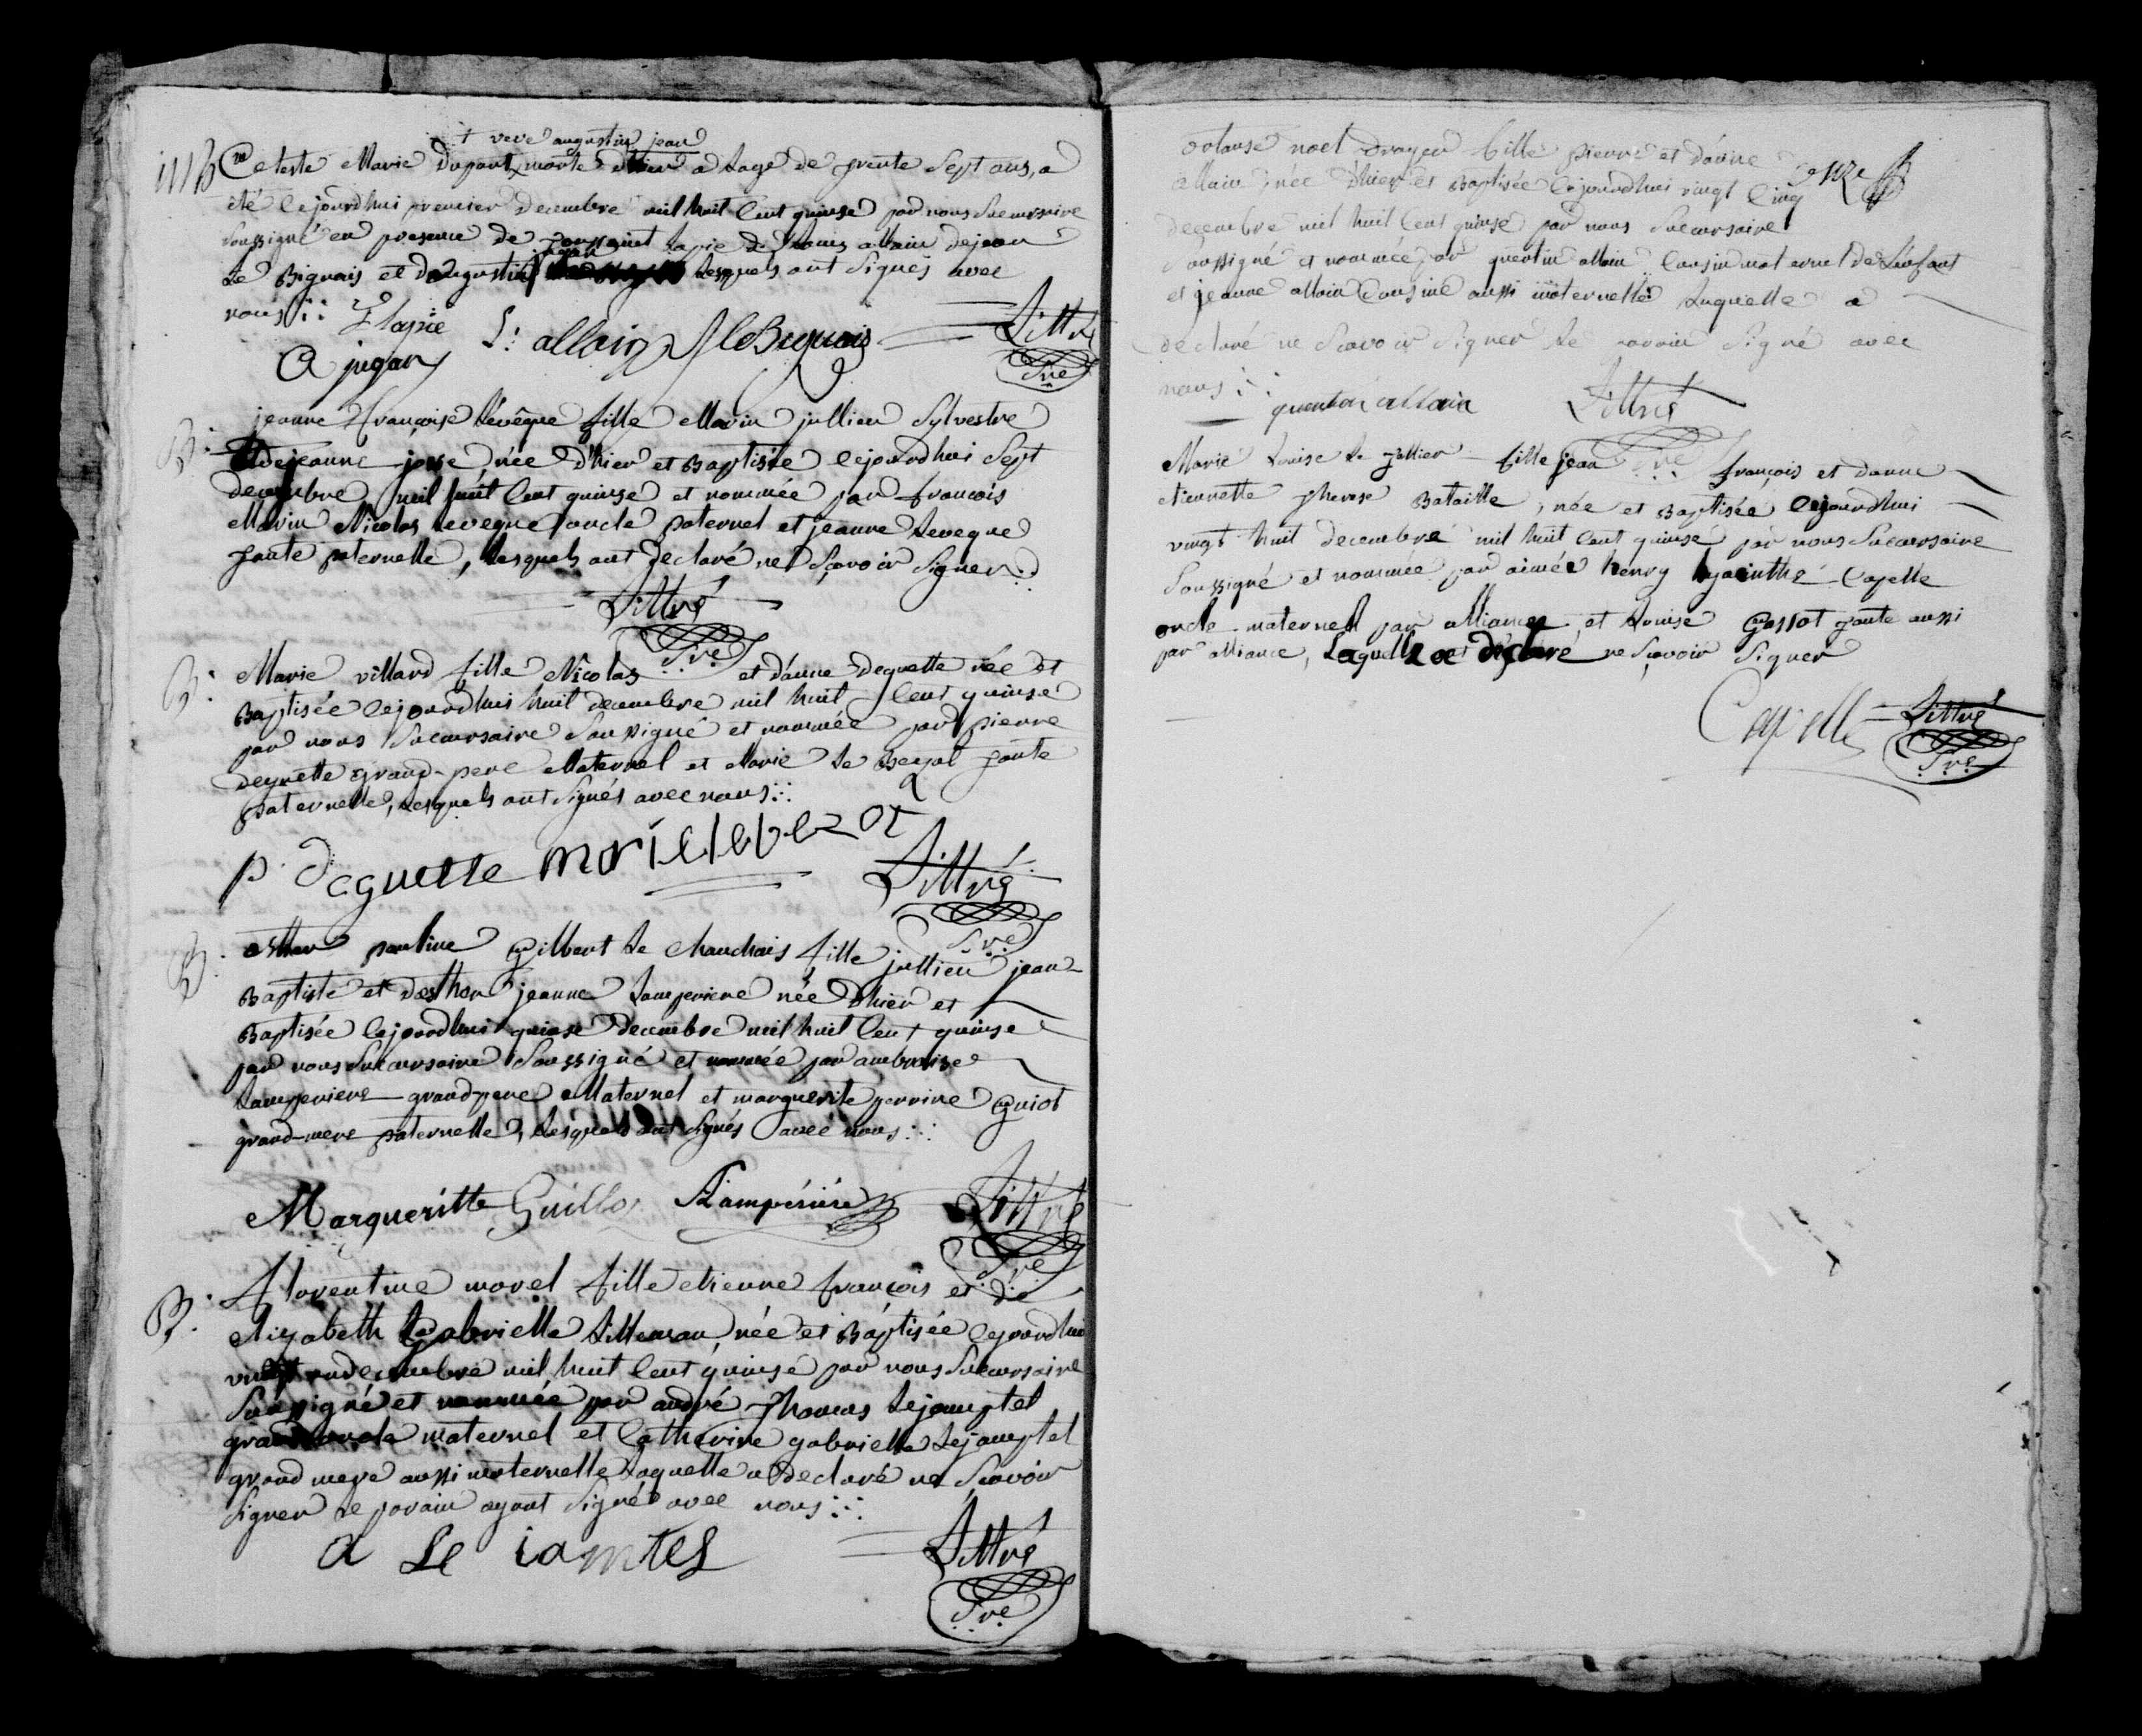 † veve augustin jean
Celeste Marie Dupont, morte d'hier a Lage de trente Sept ans, a
été cejourdhui premier decembre mil huit Cent quinse par nous Sucursaire
soussigné en presence de toussaint Lapie de Louis allain de jean
Le Biguais et d'augustin jugan Lesquels ont Signés avec
nous
T lapie L: allain J leBiguais Littré
A jugan Sre
B: jeanne françoise Levêque fille Marin jullien Sylvestre
et de jeanne josse, née d'hier et Baptisée cejourdhui Sept
decembre mil huit Cent quinse et nommée par françois
Marin Nicolas Leveque oncle paternel et jeanne Leveque
tante paternelle, Lesquels ont declaré ne Sçavoir Signer
Littré
Sre
B: Marie villard fille Nicolas et d'anne Deguette née et
Baptisée cejourdhui huit decembre mil huit Cent quinse
par nous Sucursaire Soussigné et nommée par pierre
deguette grand-pere Maternel et Marie Le Bezot tante
paternelle, Lesquels ont Signés avec nous
p. deguette marie lebezot
Littré
Sre
B: esther pauline Gilbert Le Chauchais fille jullien jean
Baptiste et d'esther jeanne Lamperiere née d'hier et
Baptisée cejourdhui quinse decembre mil huit Cent quinse
par nous Sucursaire Soussigné et nommée par ambroise
Lamperiere grand-pere Maternel et marguerite perrine Guiot
grand-mere paternelle, Lesquels ont Signés avec nous
Margueritte Guillo Lampérière Littré
Sre
B: florentine morel fille etienne françois et de
elizabeth Gabrielle Litteman née et Baptisée cejourdhui
vingt un decembre mil huit Cent quinse par nous Sucursaire
Soussigné et nommée par andré Thomas Lejamptel
grand oncle maternel et Catherine gabrielle Lejamptel
grand mere aussi maternelle Laquelle a declaré ne Sçavoir
Signer le parain ayant Signé avec nous
a Le iamtel Littré
Sre
onze
ortanse noel Dragon fille pierre et d'anne
allain née d'hier et Baptisée cejourdhui vingt Cinq
decembre mil huit Cent quinse par nous Sucursaire
Soussigné et nommée par quentin allain Cousin maternel de L'enfant
et jeanne allain Cousine aussi maternelle Laquelle a
declaré ne Scavoir Signer Le parain Signé avec
nous
quentin allain Littré
Sre
Marie Louise Le tellier fille jean françois et danne
etiennette therese Bataille, née et Baptisée cejourdhui
vingt huit decembre mil huit Cent quinse par nous Sucursaire
Soussigné et nommée par aimée henry hyacinthe Capelle
oncle maternel par alliance et Louise Gossot tante aussi
par alliance, Laquelle a déclaré ne Sçavoir Signer
Capelle Littré
Sre